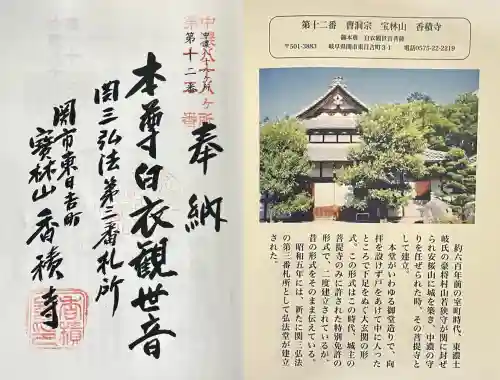 奉納
本尊白衣観世音
関三弘法第三番札所
関市東日吉町
寳林山 香積寺
第十二番
香積
第十二番 曹洞宗 宝林山 香積寺
御本尊 白衣観世音菩薩
〒501-3883 岐阜県関市東日吉町3-1 電話0575-22-2219
約六百年前の室町時代、東濃土
岐氏の豪将村山若狭守が関に封ぜ
られ安桜山に城を築き、中濃の守
りを任ぜられた時、その菩提寺と
して建立。
本堂がいわゆる御堂造りで、向
拝を設けず戸をあけて中に入った
ところで下足をぬぐ大玄関の形
式。この形式はこの時代、城主の
菩提寺のみに許された特別免許の
形式で、二度建立されているが、
昔の形式をそのまま伝えている。
昭和五年には、新たに関三弘法
の第三番札所として弘法堂が建立
された。